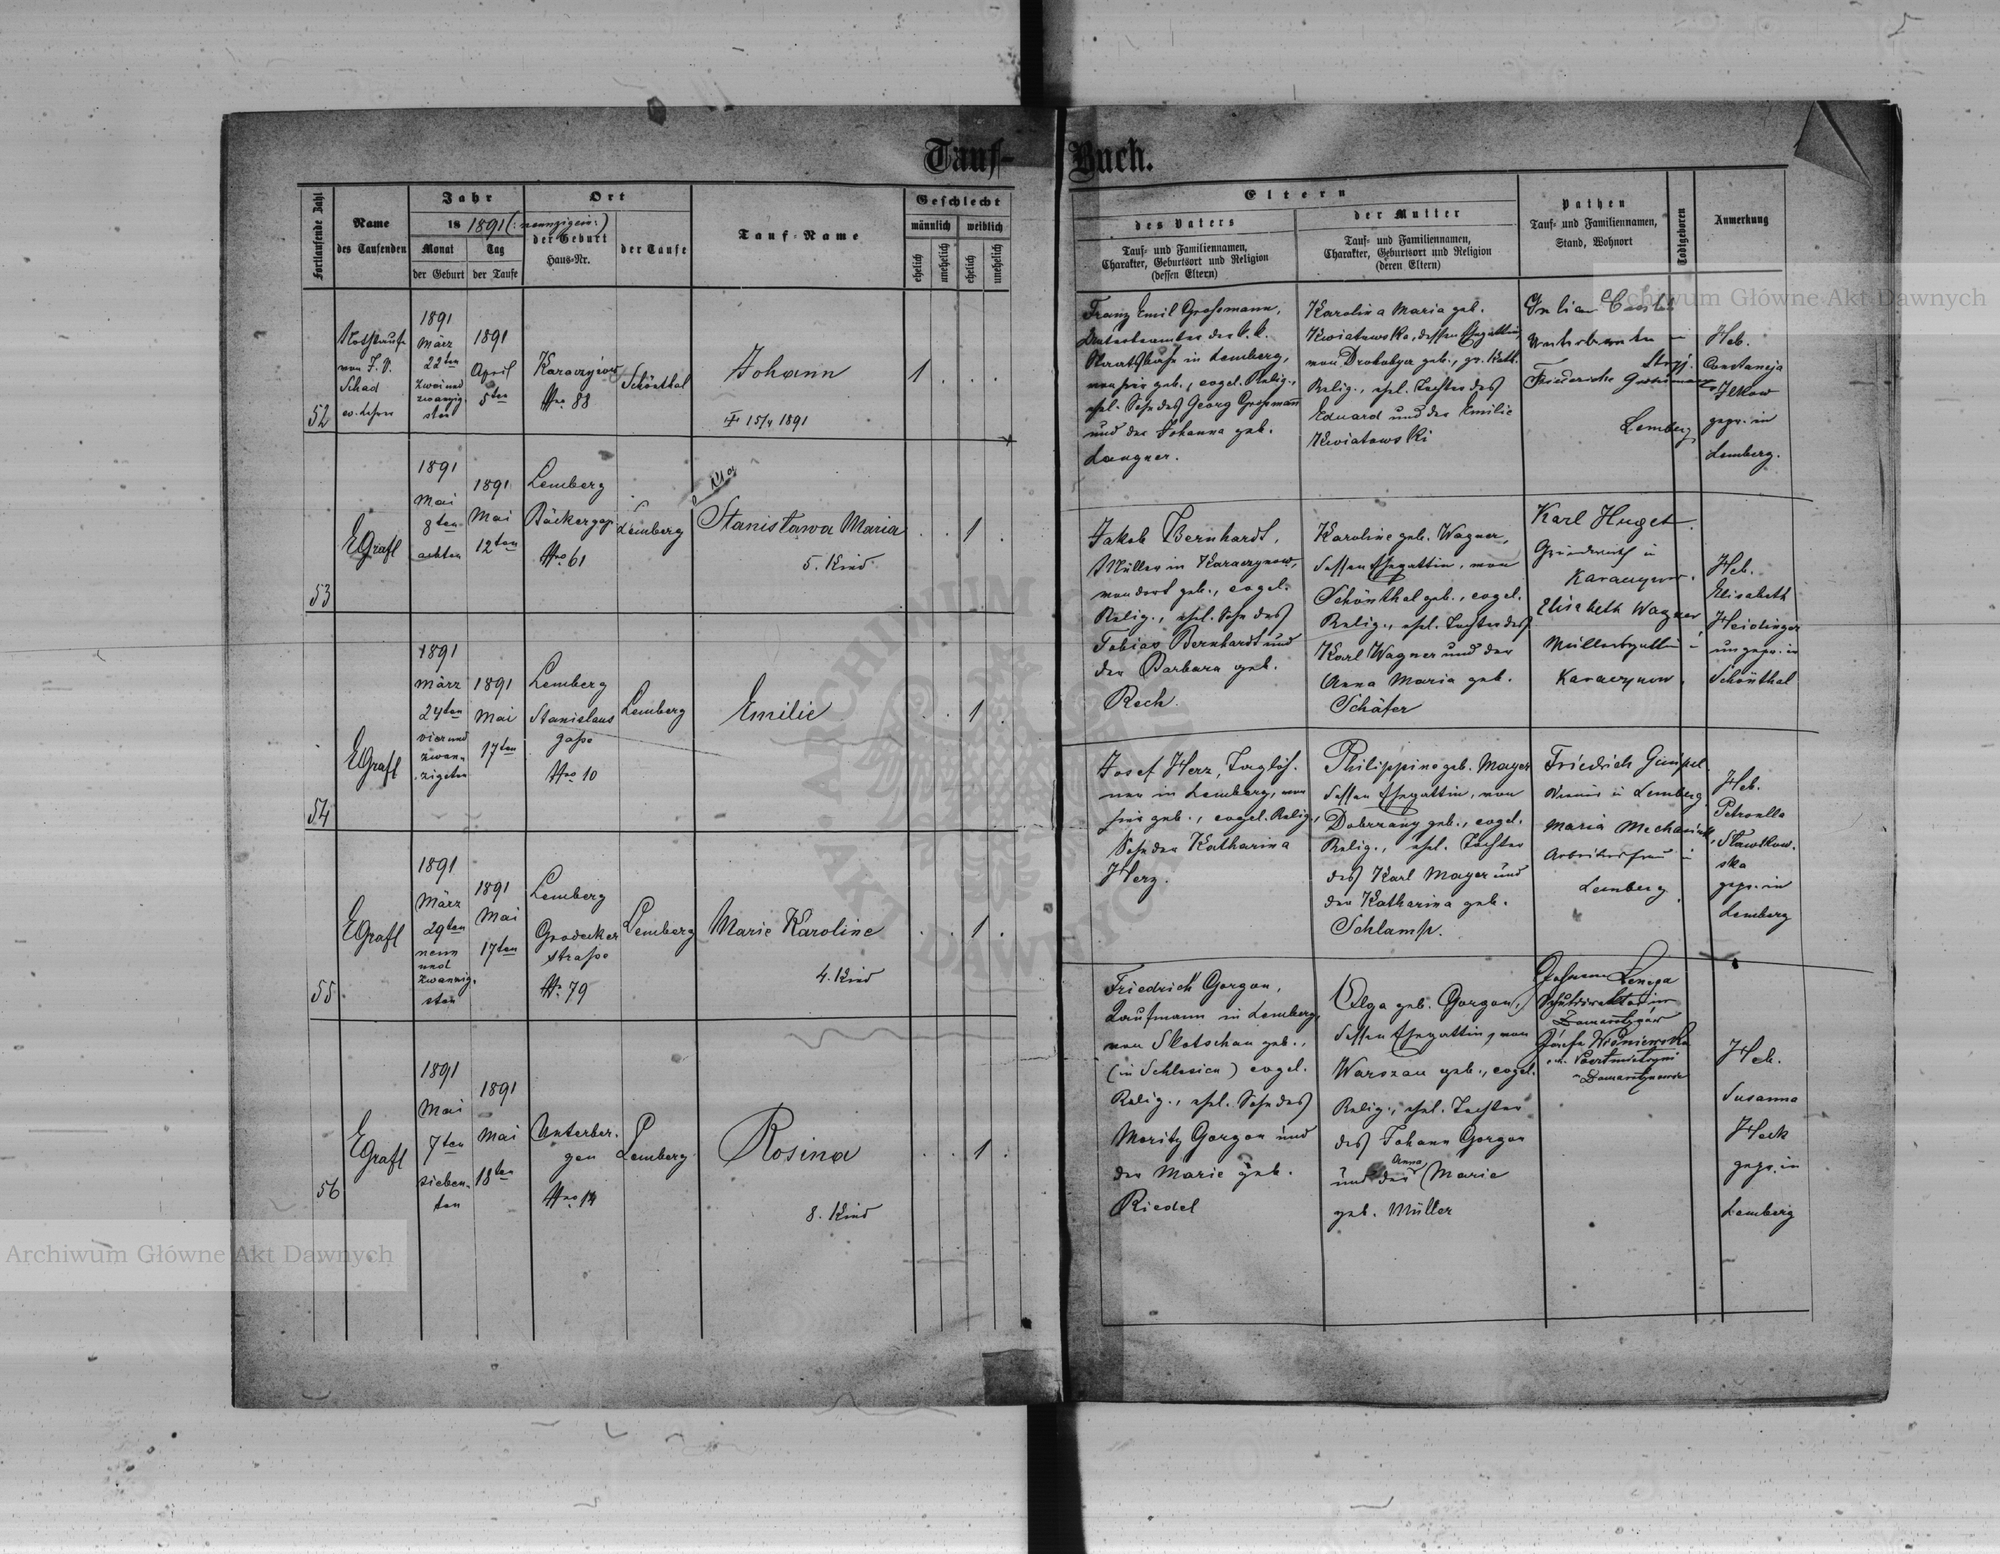 Tauf-Buch.
Fortlaufende Zahl
Name
des Taufenden
Jahr
18 1891 (: neunzigein :)
Monat
der Geburt
Tag
der Taufe
Ort
der Geburt
Haus-Nr.
der Taufe
Tauf-Name
Geschlecht
männlich
weiblich
ehelich
unehelich
ehelich
unehelich
Eltern
des Vaters
Tauf- und Familiennamen,
Charakter, Geburtsort und Religion
(dessen Eltern)
der Mutter
Tauf- und Familiennamen,
Charakter, Geburtsort und Religion
(deren Eltern)
Pathen
Tauf- und Familiennamen,
Stand, Wohnort
Todtgeboren
Anmerkung
52
Nothtaufe
von J. V.
Schad
ev. Lehrer
1891
März
22ten
zwei und
zwanzig-
sten
1891
April
5ten
Karaczynow
Nro. 88
Schönthal
Johann
15/4 1891
1
53
EGrafl
1891
Mai
8ten
achten
1891
Mai
12ten
Lemberg
Bäckerg.
Nro 61
Lemberg
Stanisława Maria
5. Kind
1
54
EGrafl
1891
März
24ten
vier und
zwan-
zigsten
1891
Mai
17ten
Lemberg
Stanislaus
gasse
Nro 10
Lemberg
Emilie
1
55
EGrafl
1891
März
29ten
neun
und
zwanzig-
sten
1891
Mai
17ten
Lemberg
Grodecker
strasse
Nr. 79
Lemberg
Marie Karoline
4. Kind
1
56
EGrafl
1891
Mai
7ten
sieben-
ten
1891
Mai
18ten
Unterber-
gen
Nro. 14
Lemberg
Rosina
8. Kind
1
Franz Emil Großmann,
der k. k.
in Lemberg,
von hier geb., evgel. Relig.,
ehel. Sohn des Georg Großmann
und der Johanna geb.
Langner.
Karolina Maria geb.
Kwiatowska, dessen Ehegattin,
von Drohobycz geb., gr. kath.
Relig., ehel. Tochter des
Eduard und der Emilie
Kwiatowski
Stryj.
Friederike
Lemberg
Heb.
Constancja
Ilkow
gepr. in
Lemberg.
Jakob Bernhardt,
Müller in Karaczynow,
von dort geb., evgel.
Relig., ehel. Sohn des
Tobias Bernhardt und
der Barbara geb.
Rech.
Karoline geb. Wagner,
dessen Ehegattin, von
Schönthal geb., evgel.
Relig., ehel. Tochter des
Karl Wagner und der
Anna Maria geb.
Schäfer
Karl Huget.
Grundwirth in
Karaczynow.
Elisabeth Wagner
Müllersgattin in
Karaczynow.
Heb.
Elisabeth
Heidinger
ungepr. in
Schönthal
Josef Herz, Taglöh-
ner in Lemberg, von
hier geb., evgel. Relig.,
Sohn der Katharina
Herz.
Philippine geb. Mayer
dessen Ehegattin, von
Dobrzany geb., evgel.
Relig., ehel. Tochter
des Karl Mayer und
der Katharina geb.
Schlamp.
Friedrich Gimpel
in Lemberg
Maria
Arbeitersfrau in
Lemberg
Heb.
Petronella
Stawkow-
ska
gepr. in
Lemberg
Friedrich Gorgon,
Kaufmann in Lemberg,
von Skotschau geb.,
(in Schlesien) evgel.
Relig., ehel. Sohn des
Moritz Gorgon und
der Marie geb.
Riedel
Olga geb. Gorgon,
dessen Ehegattin, von
Warszau geb., evgel.
Relig., ehel. Tochter
des Johann Gorgon
und der Anna Marie
geb. Müller
Józefa Wiśniewska
Heb.
Susanna
Heck
gepr. in
Lemberg
Archiwum Główne Akt Dawnych
Archiwum Główne Akt Dawnych
ARCHIWUM GŁÓWNE AKT DAWNYCH